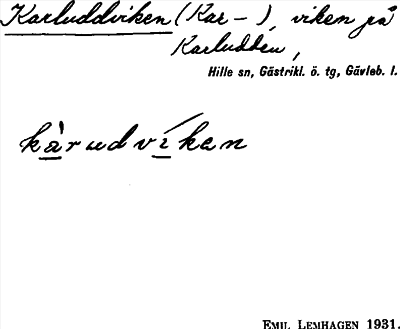 Karluddviken (Kar–), viken på
Karludden,
Hille sn, Gästrikl. ö. tg, Gävleb. l.
kàrudvíken
EMIL LEMHAGEN 1931.